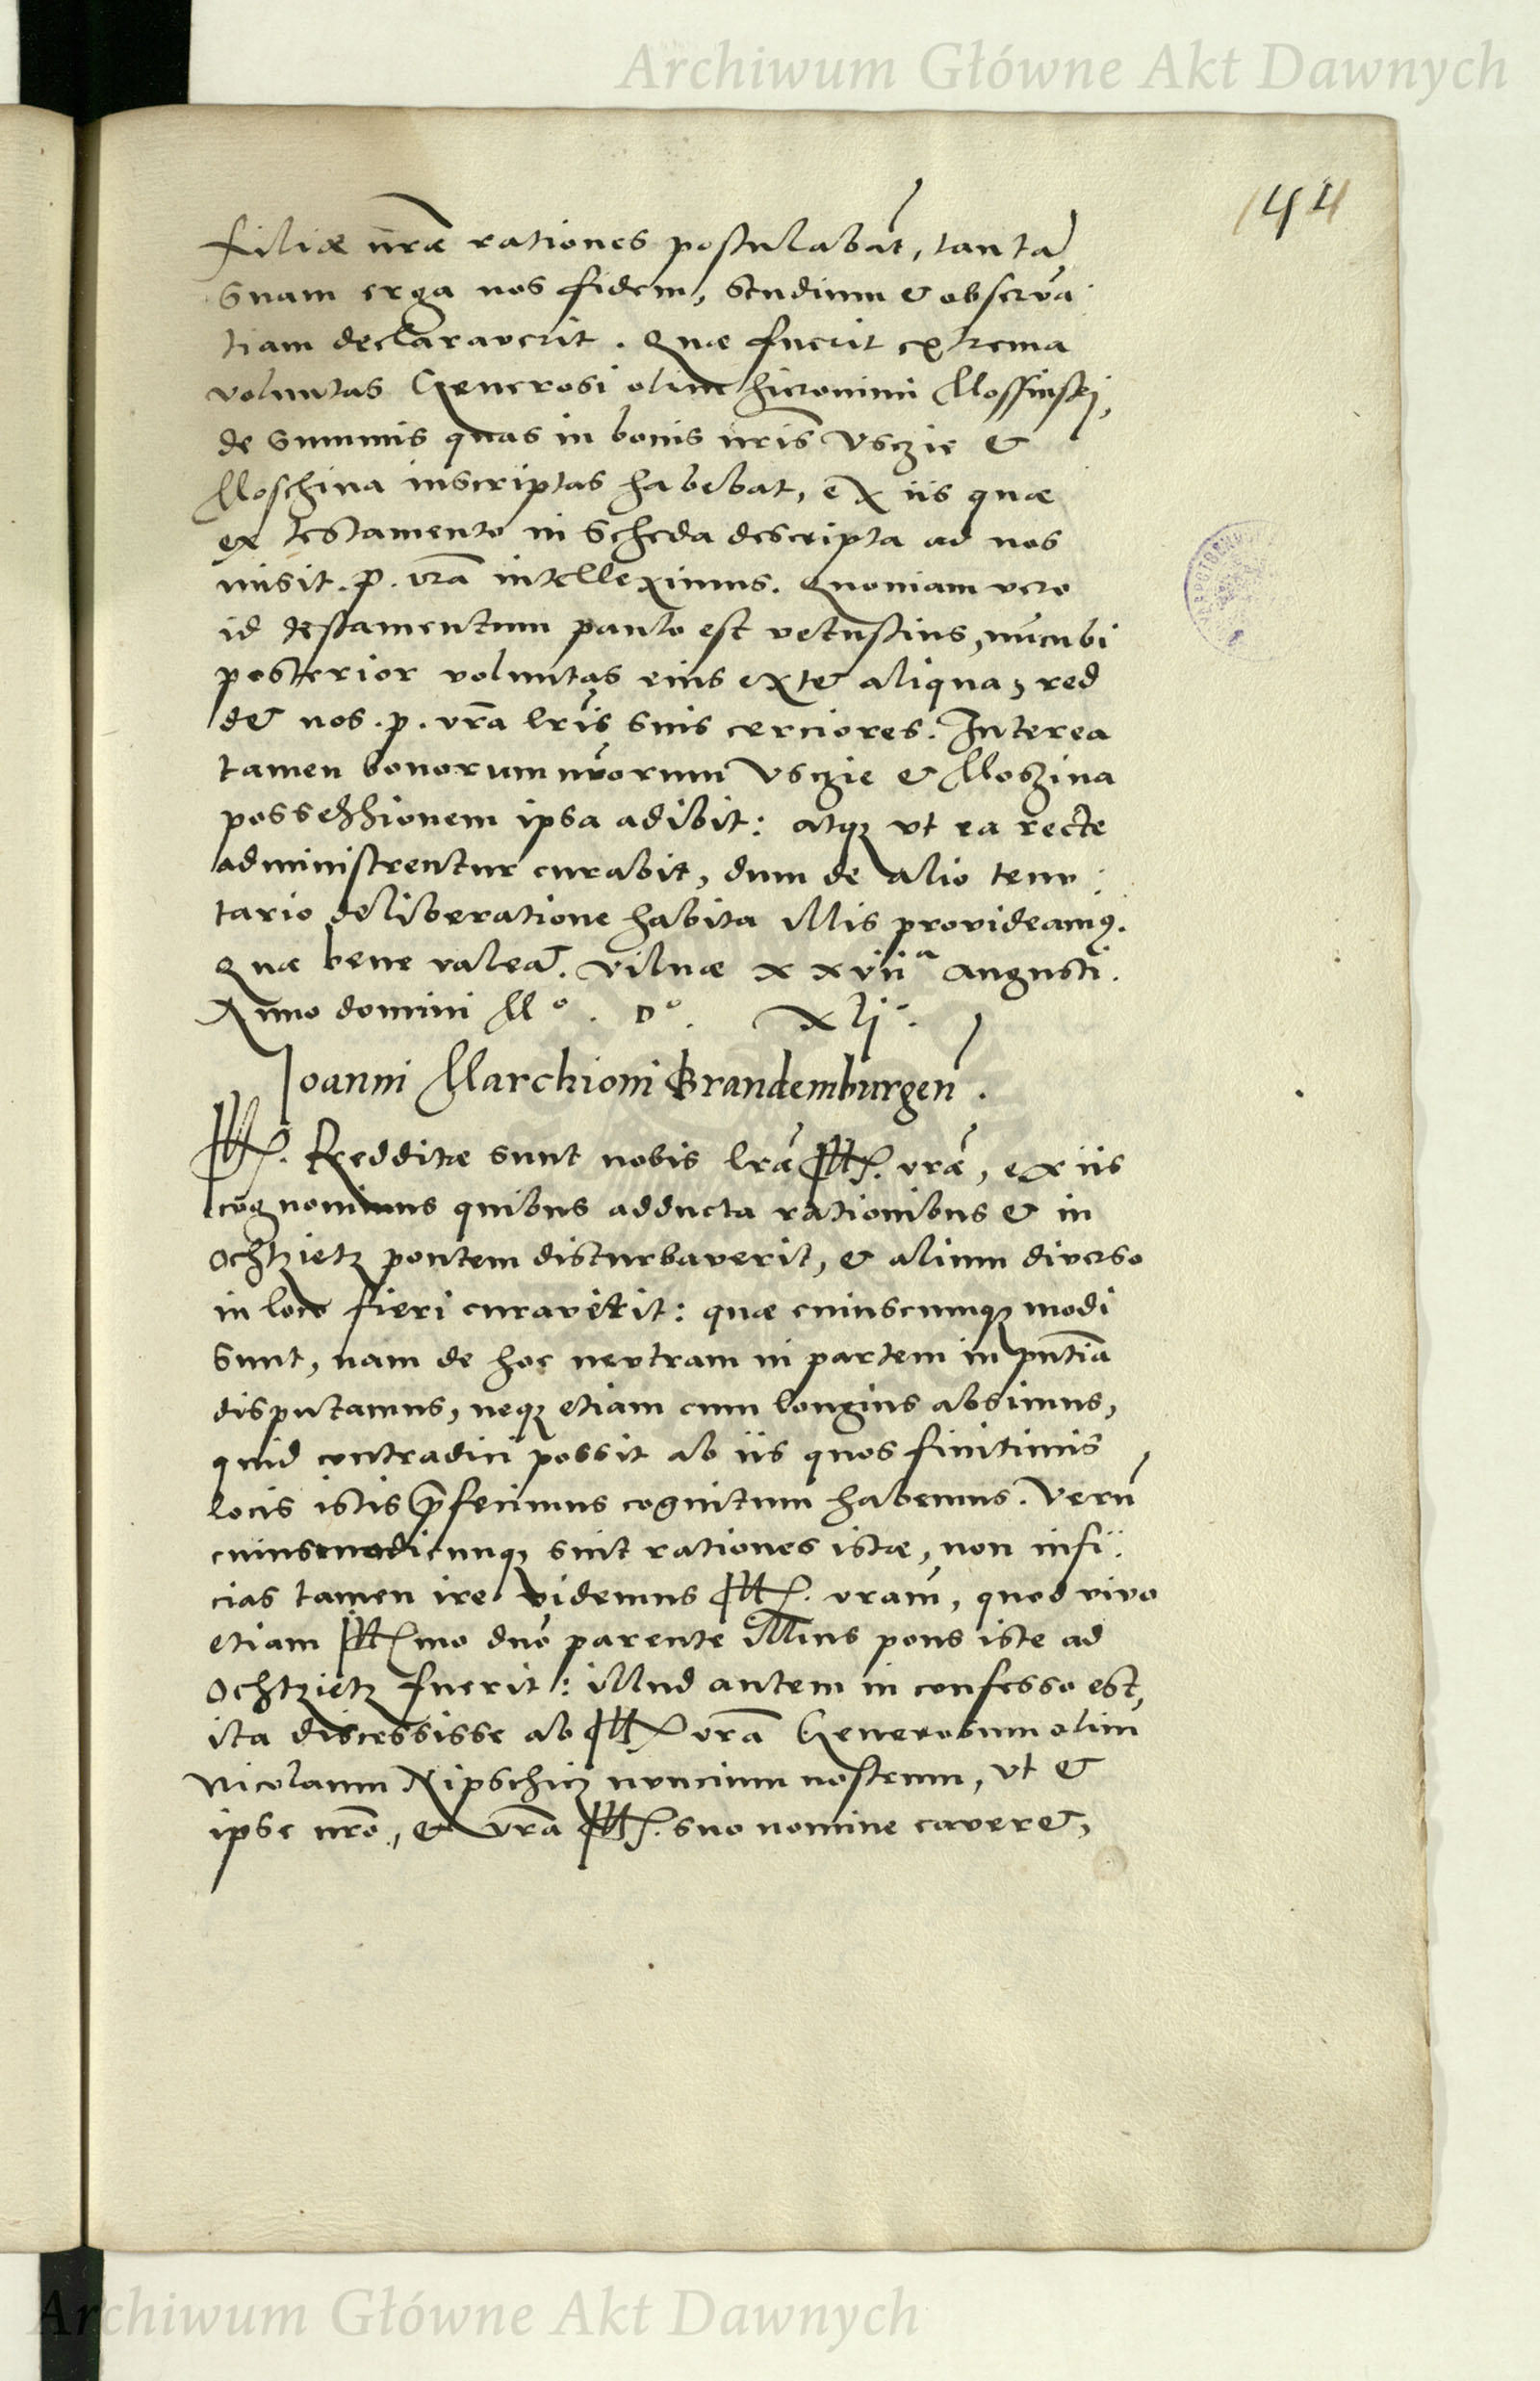 Archiwum Główne Akt Dawnych
144
filiæ nr̃æ rationes postulabãt, tantã
suam erga nos fidem, studium & observã
tiam declaraverit. Quæ fuerit extrema
voluntas Generosi olim Hieronimi Mossinskj,
de summis quas in bonis nr̃is Usczie &
Moschina inscriptas habebat, ex iis quæ
ex testamento in scheda descripta ad nos
misit .p. vr̃a intelleximus. Quoniam vero
id testamentum paulo est vetustius, nũcubi
posterior voluntas eius extet aliqua, red
det nos .p. vr̃a lr̃is suis cerciores. Interea
tamen bonorum nr̃orum Usczie & Moszina
possessionem ipsa adibit: atq; ut ea recte
administrentur curabit, dum de alio tenu:
tario deliberatione habita illis provideamus.
Quæ bene valeat. Vilnæ xxviiª Augusti.
Anno domini M°. D°. xlj°.
Joanni Marchioni Brandemburgeñ.
Ill. Redditæ sunt nobis lr̃æ Ill. vr̃æ, ex iis
cognovimus quibus adducta rationibus & in
Ochtzietz pontem disturbaverit, & alium diverso
in loco fieri curaverit: quæ cuiuscumq; modi
sunt, nam de hoc neutram in partem in pñtia
disputamus, neq; etiam cum longius absimus,
quid contradici possit ab iis quos finitimis
locis istis p̃fecimus cognitum habemus. Verũ
cuiusmodicunq; sint rationes istæ, non infi:
cias tamen ire videmus Ill. vram, quod vivo
etiam Illmo dño parente illius pons iste ad
Ochtzietz fuerit: illud autem in confesso est,
ita discessisse ab Ill vr̃a Generosum olim
Nicolaum Nipschicz nuncium nostrum, ut &
ipse nr̃o, & vr̃a Ill. suo nomine caveret,
Archiwum Główne Akt Dawnych